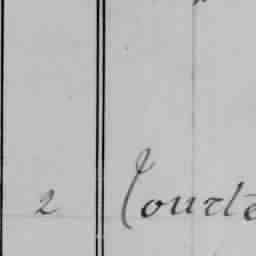 2 Courte